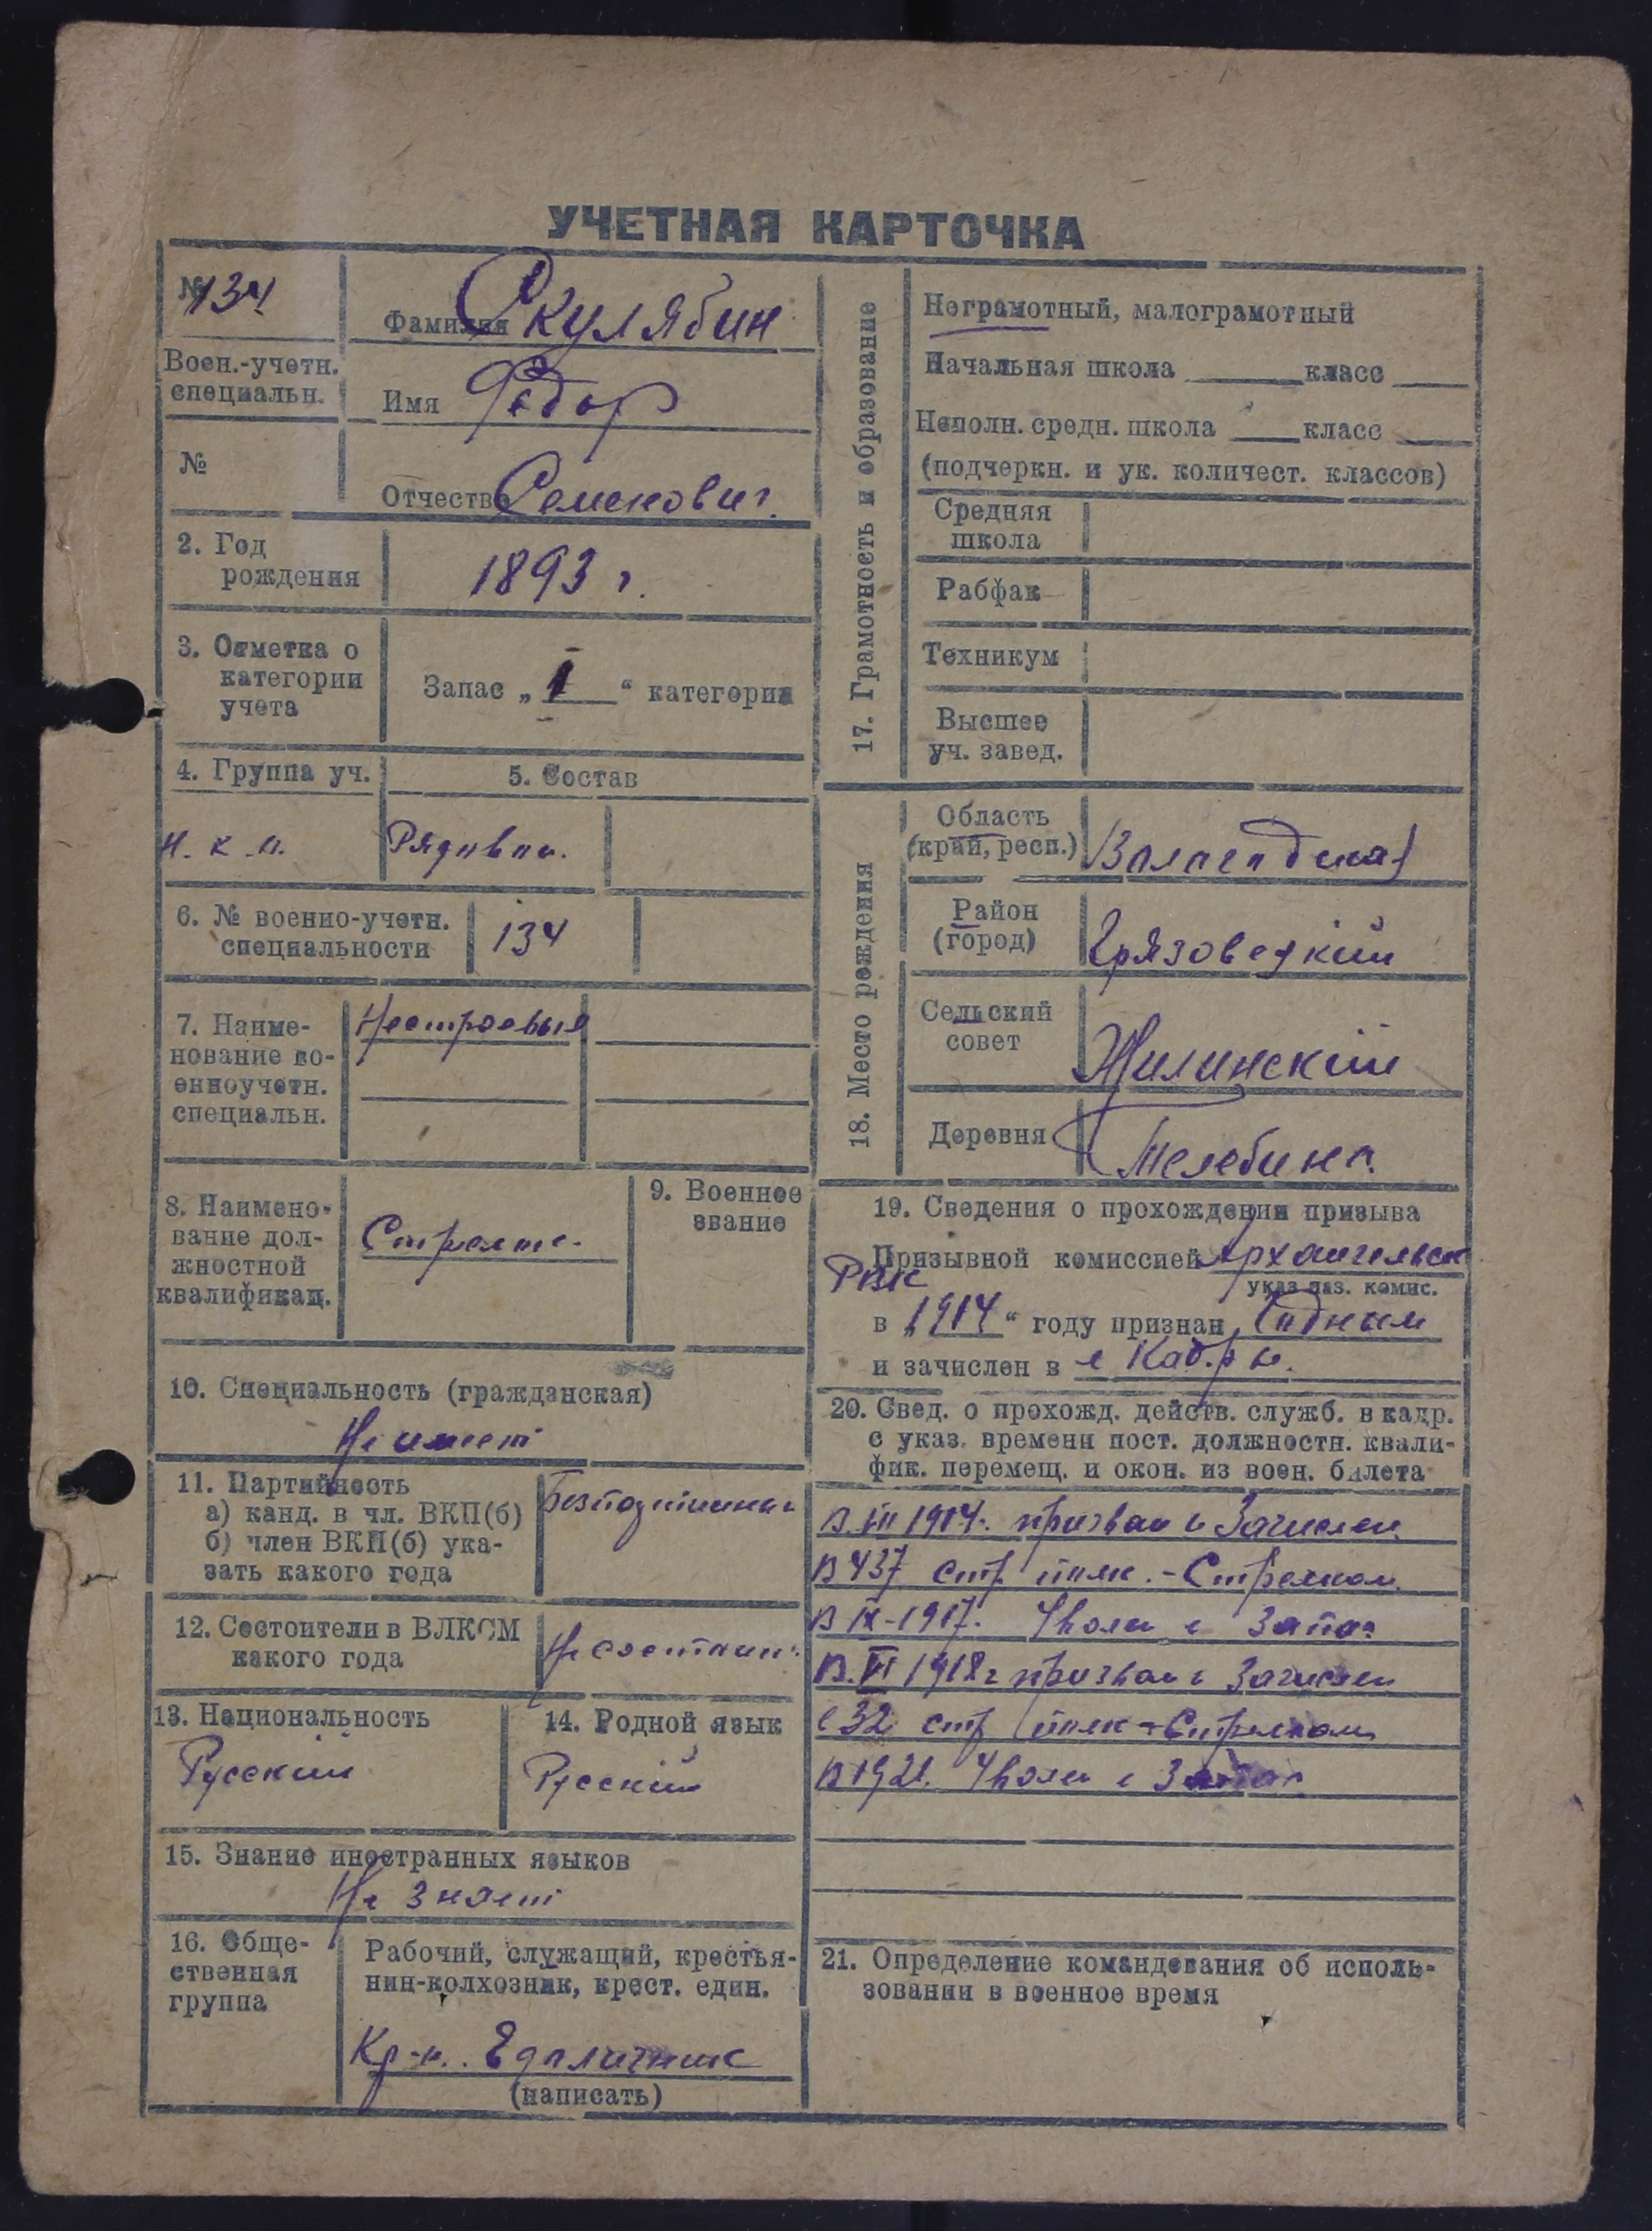 УЧЕТНАЯ КАРТОЧКА
№ 134
Фамилия Скулябин
Воен.-учетн.
специальн.
Имя Федор
№
Отчество Семенович.
2. Год
рождения
1893 г.
3. Отметка о
категории
учета
Запас „ 1 “ категории
4. Группа уч.
5. Состав
Н.К.О.
Рядовой.
6. № военно-учетн.
специальности
134
7. Наиме-
нование во-
енноучетн.
специальн.
Нестроевые
8. Наимено-
вание дол-
жностной
квалификац.
9. Военное
звание
10. Специальность (гражданская)
Не имеет
11. Партийность
а) канд. в чл. ВКП(б)
б) член ВКП(б) ука-
зать какого года
12. Состоители в ВЛКСМ
какого года
Не состоит
13. Национальность
Русский
14. Родной язык
Русский
15. Знание иностранных языков
Не знает
16. Обще-
ственная
группа
Рабочий, служащий, крестья-
нин-колхозник, крест. един.
Кр-н. Едоличник
(написать)
17. Грамотность и образование
Неграмотный, малограмотный
Начальная школа класс
Неполн. средн. школа класс
(подчеркн. и ук. количест. классов)
Средняя
школа
Рабфак
Техникум
Высшее
уч. завед.
18. Место рождения
Область
(край, респ.)
Вологодская
Район
(город)
Грязовецкий
Сельский
совет
Жилинский
Деревня
Телебино.
19. Сведения о прохождении призыва
Призывной комиссией Архангельск
РВК
указ. наз. комис.
в „1914“ году признан Годным
и зачислен в в Кадры.
20. Свед. о прохожд. действ. служб. в кадр.
с указ. времени пост. должностн. квали-
фик. перемещ. и окон. из воен. билета
призван и Зачислен
В 437 стр полк. - Стрелком.
В IX-1917. Уволен в Запас
В. VI 1918 г призван и Зачислен
в 32 стр полк - Стрелком
В 1921. Уволен в Запас
21. Определение командования об исполь-
зовании в военное время